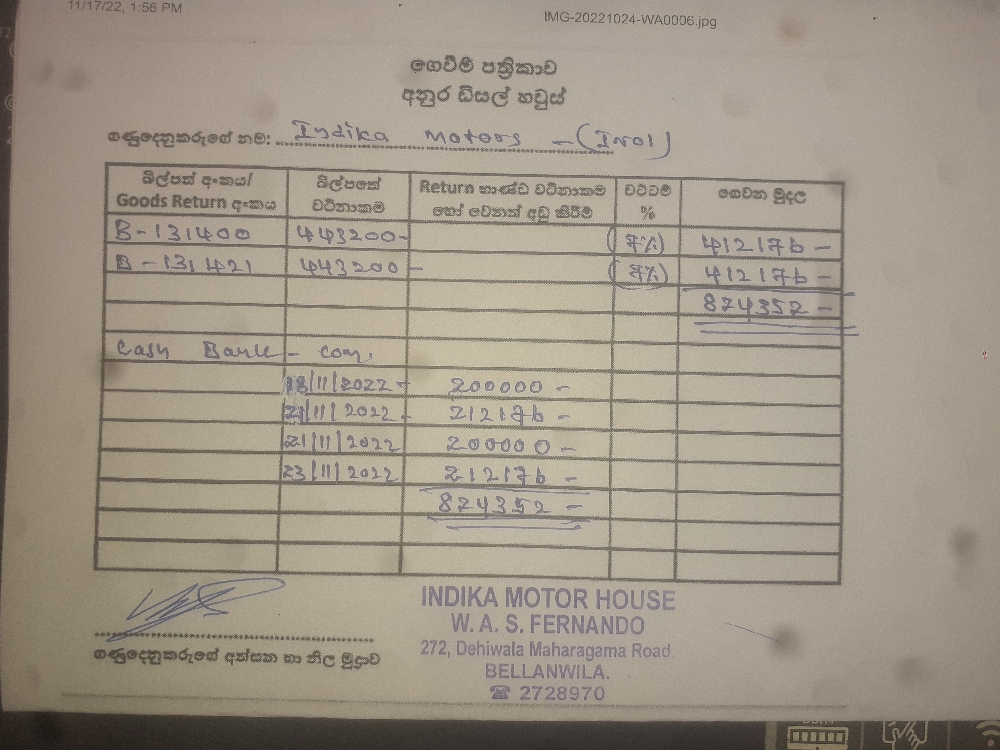 11/17/22, 1:56 PM
IMG-20221024-WA0006.jpg
ගෙවීම් පත්‍රිකාව
අනුර ඩීසල් හවුස්
ගණුදෙනුකරුගේ නම: Indika Motors - (IN01)
බිල්පත් අංකය/ Goods Return අංකය බිල්පතේ වටිනාකම Return භාණ්ඩ වටිනාකම හෝ වෙනත් අඩු කිරීම් වට්ටම් % ගෙවන මුදල
B-131400 443200- (7%) 412176 -
B-131421 443200- (7%) 412176 -
824352 -
Cash Bank - com,
18/11/2022 - 200000 -
21/11/2022 - 212176 -
21/11/2022 200000 -
23/11/2022 212176 -
824352 -
ගණුදෙනුකරුගේ අත්සන හා නිල මුද්‍රාව
INDIKA MOTOR HOUSE
W. A. S. FERNANDO
272, Dehiwala Maharagama Road.
BELLANWILA.
☎ 2728970